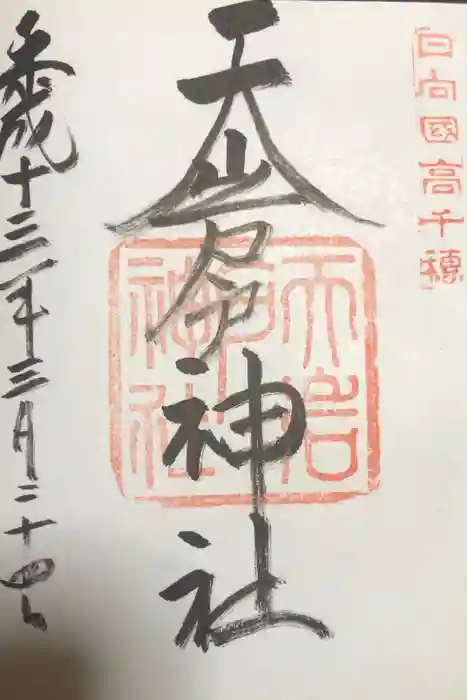 日向國高千穗
天岩戸神社
天岩
戸
神社
平成十三年三月二十四日